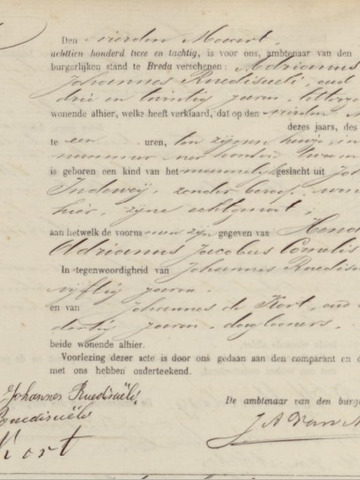 Den vierden Maart
achttien honderd twee en tachtig, is voor ons, ambtenaar van den
burgerlijken stand te Breda verschenen: Adrianus
Johannes Ruedisueli, oud
drie en twintig jaren, letterz
wonende alhier, welke heeft verklaard, dat op den vierden
dezes jaars, des
te een uren, ten zijnen huize, in
nummer vier honderd
is geboren een kind van het mannelijk geslacht uit Jo
zonder beroep,
hier, zijne echtgenoot.
aan hetwelk de voornamen zijn gegeven van Hen
Adrianus Jacobus Cornelis
In tegenwoordigheid van Johannes Ruedisu
vijftig jaren
en van Johannes de Kort, oud
dertig jaren, daglooners,
beide wonende alhier.
Voorlezing dezer acte is door ons gedaan aan den comparant en d
met ons hebben onderteekend.
Johannes Ruedisuëli
De ambtenaar van den burge
Ruedisuëli
J A van
Kort